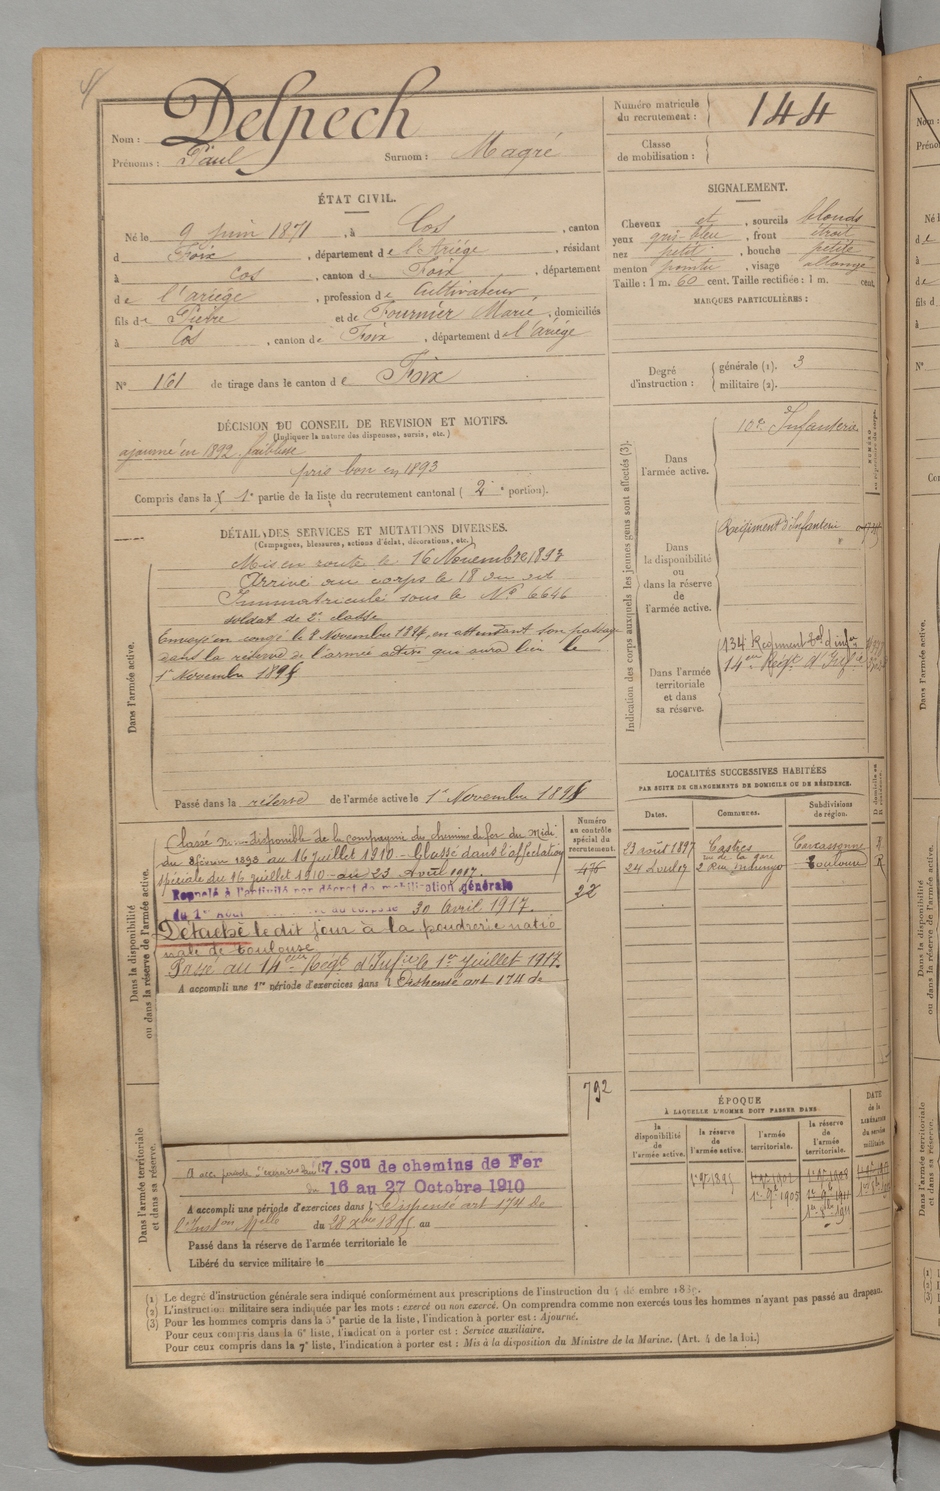 Nom : Delpech
Prénoms : Paul Surnom : Magré
Numéro matricule du recrutement : 144
Classe de mobilisation :
ÉTAT CIVIL.
Né le 9 juin 1871, à Cos, canton
d Foix, département de l'Ariége, résidant
à Cos, canton de Foix, département
de l'ariége, profession de Cultivateur
fils de Pierre et de Fournier Marie, domiciliés
à Cos, canton de Foix, département de l'Ariége
N° 161 de tirage dans le canton de Foix
SIGNALEMENT.
Cheveux et, sourcils blonds
yeux gris-bleu, front étroit
nez petit, bouche petite
menton pointu, visage allongé
Taille : 1 m. 60 cent. Taille rectifiée : 1 m. cent.
MARQUES PARTICULIÈRES :
Degré d'instruction : générale (1). 3
militaire (2).
DÉCISION DU CONSEIL DE REVISION ET MOTIFS.
(Indiquer la nature des dispenses, sursis, etc.)
ajourné en 1892 faiblesse
pris bon en 1893
Compris dans la 1e partie de la liste du recrutement cantonal (2e portion).
DÉTAIL DES SERVICES ET MUTATIONS DIVERSES.
(Campagnes, blessures, actions d'éclat, décorations, etc.)
Dans l'armée active.
Mis en route le 16 Novembre 1893
Arrivé au corps le 18 du dit
Immatriculé sous le N° 6646
soldat de 2e classe
Envoyé en congé le 8 Novembre 1894, en attendant son passage
dans la réserve de l'armée active qui aura lieu le
1er Novembre 1895
Passé dans la réserve de l'armée active le 1er Novembre 1895
Indication des corps auxquels les jeunes gens sont affectés (3).
Dans l'armée active.
10e Infanterie
Dans la disponibilité ou dans la réserve de l'armée active.
Régiment d'Infanterie
Dans l'armée territoriale et dans sa réserve.
134 Régiment
14eme Régt d'Infie
LOCALITÉS SUCCESSIVES HABITÉES
PAR SUITE DE CHANGEMENTS DE DOMICILE OU DE RÉSIDENCE.
Dates. Communes. Subdivisions de région.
23 août 1897 Castres Carcassonne
rue de la gare
24 2 Rue Toulouse R
Numéro au contrôle spécial du recrutement.
476
22
792
Dans la disponibilité ou dans la réserve de l'armée active.
Classé non disponible de la compagnie du chemins de fer du Midi
du 1898 au 16 juillet 1910 - Classé dans l'affectation
spéciale du 16 juillet 1910 au 23 Avril 1917.
Rappelé à l'activité par décret de mobilisation générale
du 1er Aout 30 Avril 1917.
Détaché le dit jour à la poudrerie natio
nale de Toulouse
Passé au 14eme Régt d'Infie le 1er juillet 1917.
A accompli une 1re période d'exercices dans l Dispensé art 174 de
Dans l'armée territoriale et dans sa réserve.
7. Son de chemins de Fer
du 16 au 27 Octobre 1910
A accompli une période d'exercices dans l Dispensé art 174 de
l'Inston Melle du 28 Xbre 1895 au
Passé dans la réserve de l'armée territoriale le
Libéré du service militaire le
ÉPOQUE
À LAQUELLE L'HOMME DOIT PASSER DANS
la disponibilité de l'armée active.
la réserve de l'armée active.
l'armée territoriale.
la réserve de l'armée territoriale.
DATE de la LIBÉRATION du service militaire.
(1) Le degré d'instruction générale sera indiqué conformément aux prescriptions de l'instruction du
(2) L'instruction militaire sera indiquée par les mots : exercé ou non exercé. On comprendra comme non exercés tous les hommes n'ayant pas passé au drapeau.
(3) Pour les hommes compris dans la 5e partie de la liste, l'indication à porter est : Ajourné.
Pour ceux compris dans la 6e liste, l'indication à porter est : Service auxiliaire.
Pour ceux compris dans la 7e liste, l'indication à porter est : Mis à la disposition du Ministre de la Marine. (Art. 4 de la loi.)